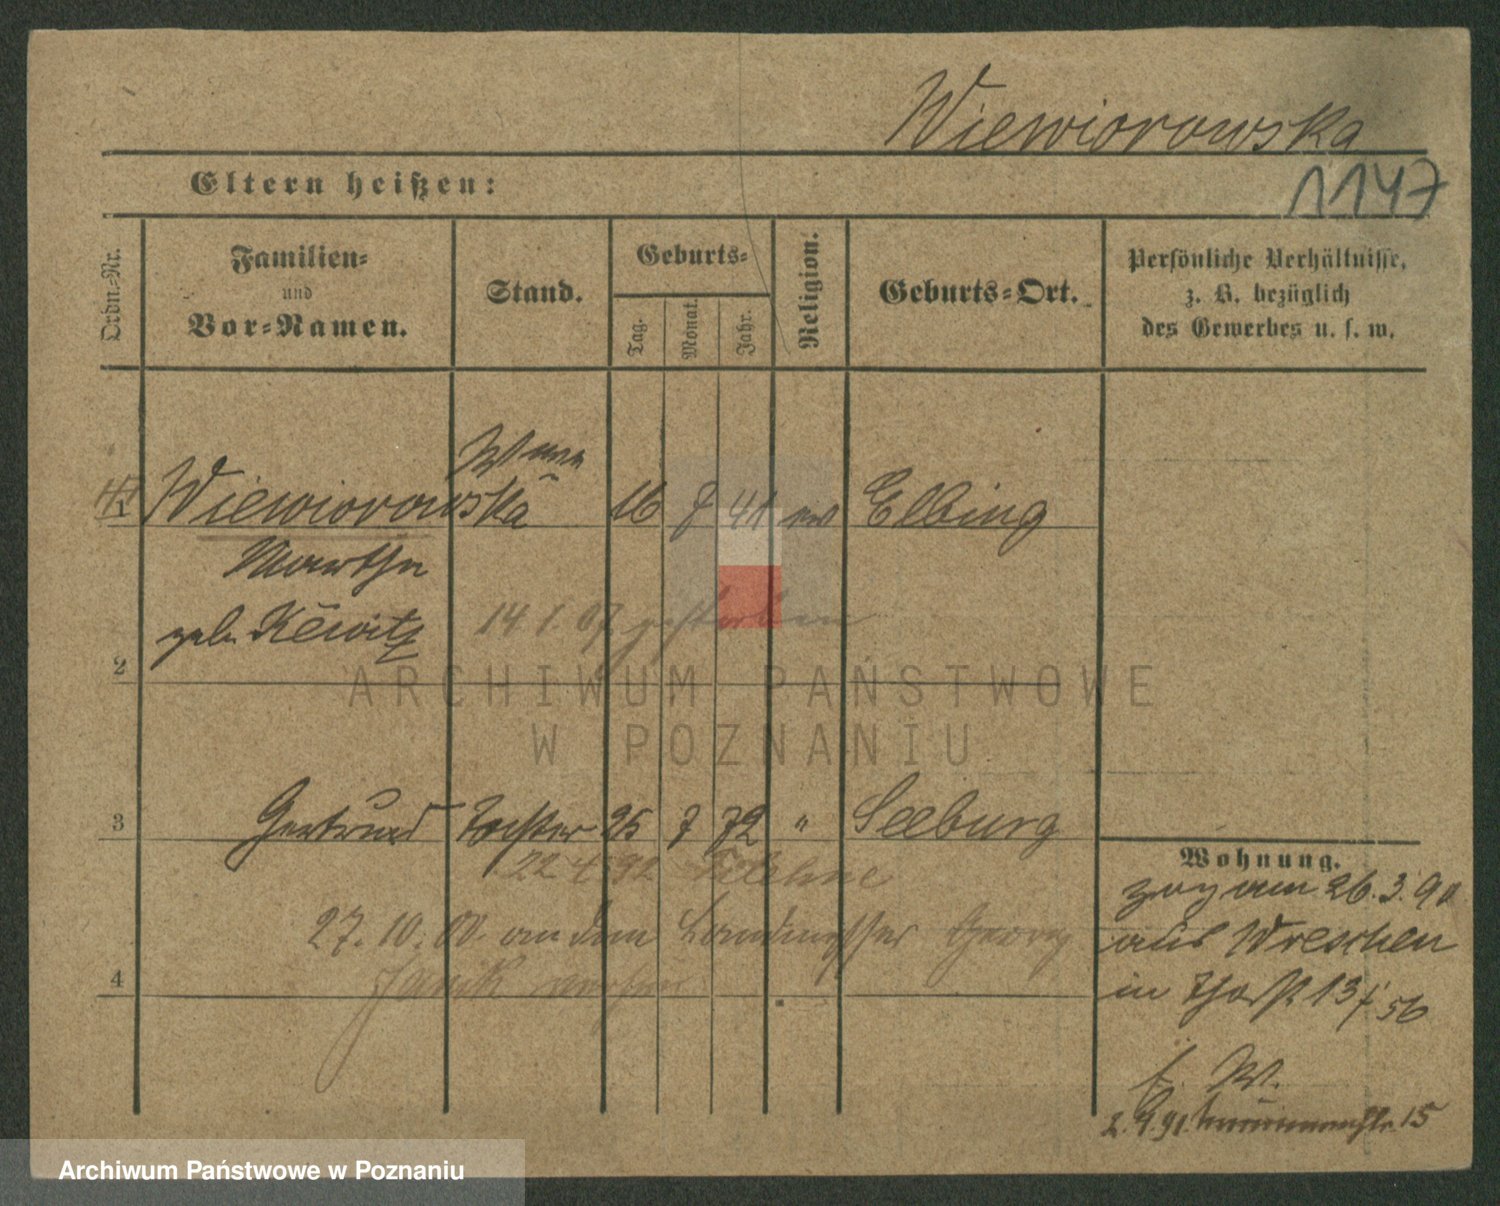 Wiewiorowska
1147
Eltern heißen:
Ordn.-Nr.
Familien-
und
Vor-Namen.
Stand.
Geburts-
Tag.
Monat.
Jahr.
Religion.
Geburts-Ort.
Persönliche Verhältnisse,
z. B. bezüglich
des Gewerbes u. s. w.
1 Wiewiorowska Wwe 16 7 41 ev Elbing
Martha
geb. Kewitz
14 1. 07 gestorben
2
ARCHIWUM PAŃSTWOWE
W POZNANIU
3 Gertrud Tochter 25 7 72 " Seeburg
22 4. 92 Filehne
27. 10. 00. an den Landmesser Georg
4 Janik
Wohnung.
zog am 26. 3. 90
aus Wreschen
in 13
f. W.
2. 4. 91. 15
Archiwum Państwowe w Poznaniu